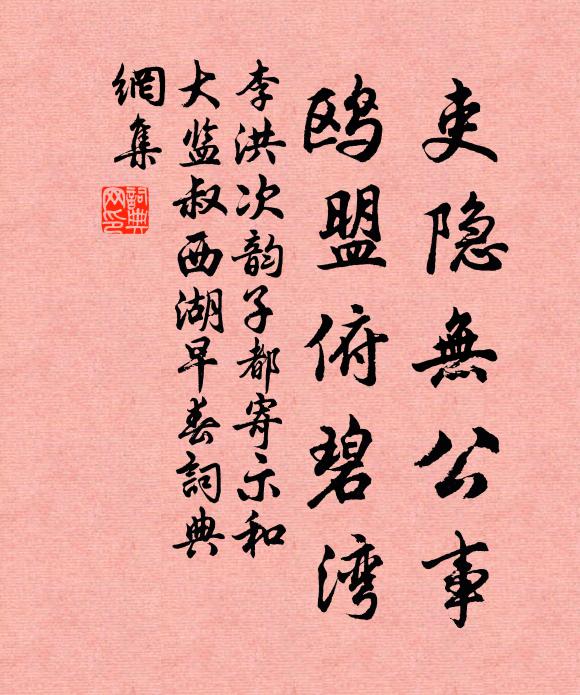 吏隐無公事
鸥盟俯碧湾
李洪次韵子都寄示和
大监叔西湖早春詞典
網集
詞典
网印